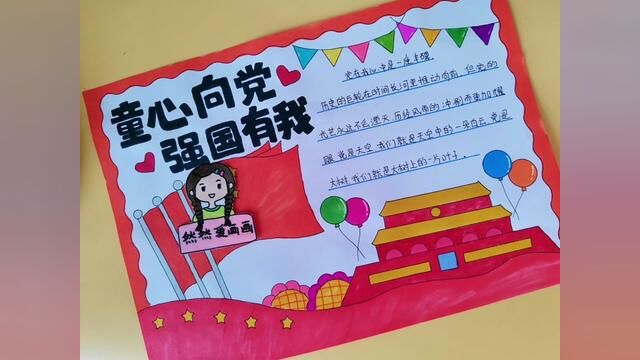 童心向党
强国有我
党在我心中是一座丰碑
历史的巨轮在时间长河里推动向前,但党的
光芒永远不会湮灭,历经风雨的冲刷而更加耀
眼,党是天空,我们就是天空中的一朵白云,党是
大树,我们就是大树上的一片叶子。
然然爱画画